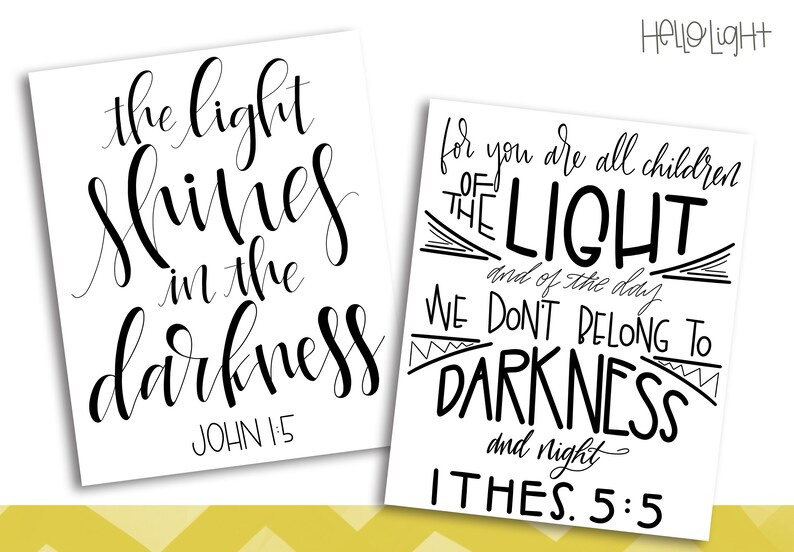 HELLO LIGHT
the light
shines
in the
darkness
JOHN 1:5
for you are all children
OF
THE LIGHT
and of the day
WE DON'T BELONG TO
DARKNESS
and night
1 THES. 5:5